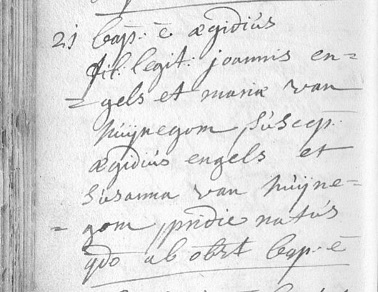 21 bap: ē ægidiús
fil: legit: joannis en=
=gels et mariæ van
húÿnegom, súscep:
ægidiús engels et
súsanna van húÿne=
=gom, pridie natús
qdo ab obst bap: ē